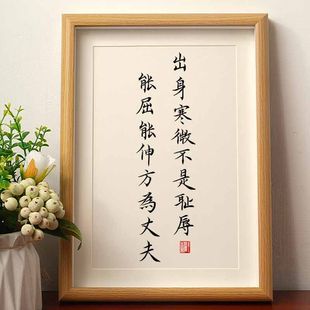 出身寒微不是耻辱
能屈能伸方為丈夫